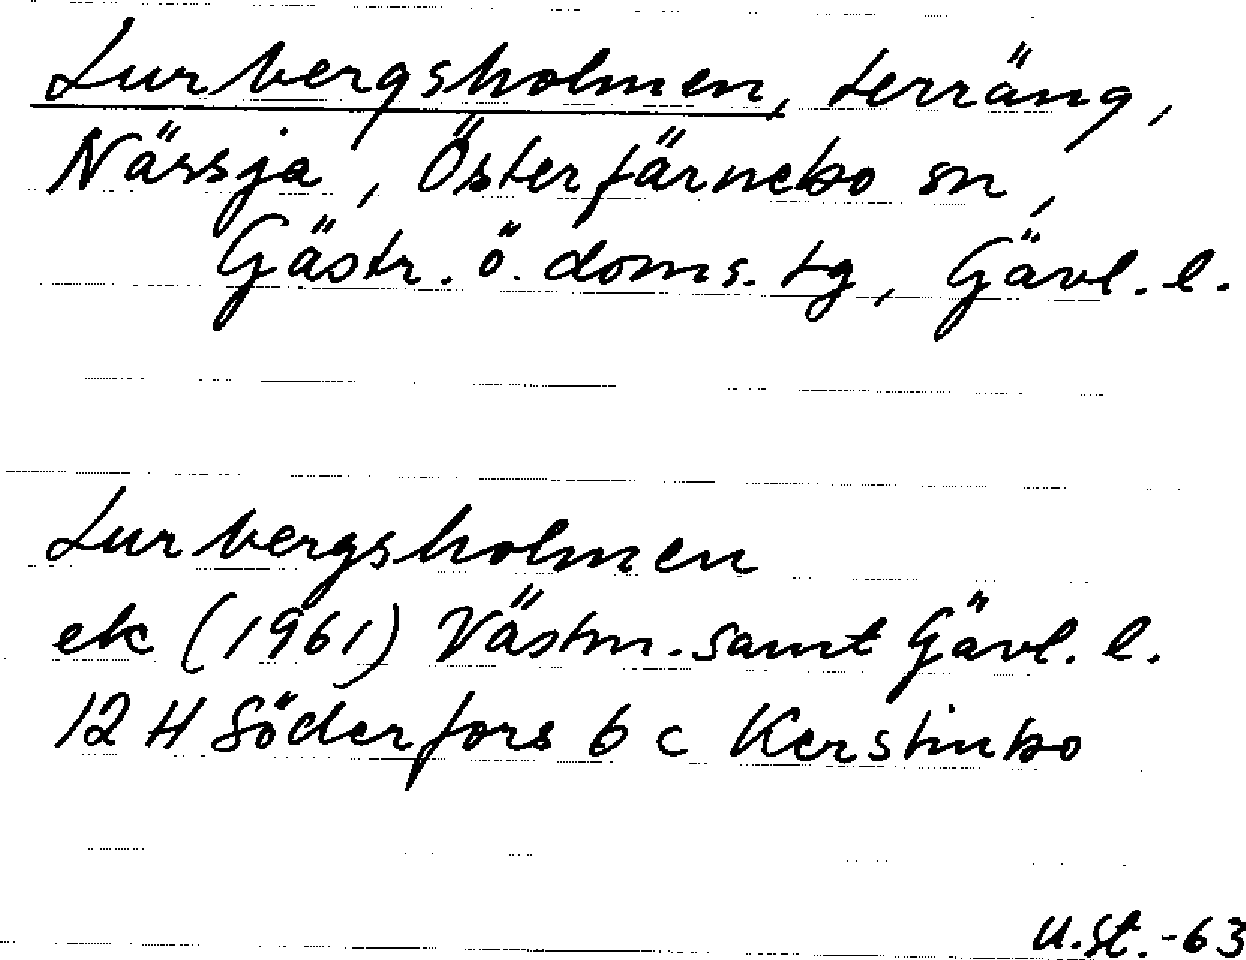 Lurbergsholmen, terräng,
Nässja, Österfärnebo sn,
Gästr. ö. doms. tg, Gävl. l.
Lurbergsholmen
ek (1961) Västm. samt Gävl. l.
12 H Söderfors 6 c Kerstinbo
U.St.-63